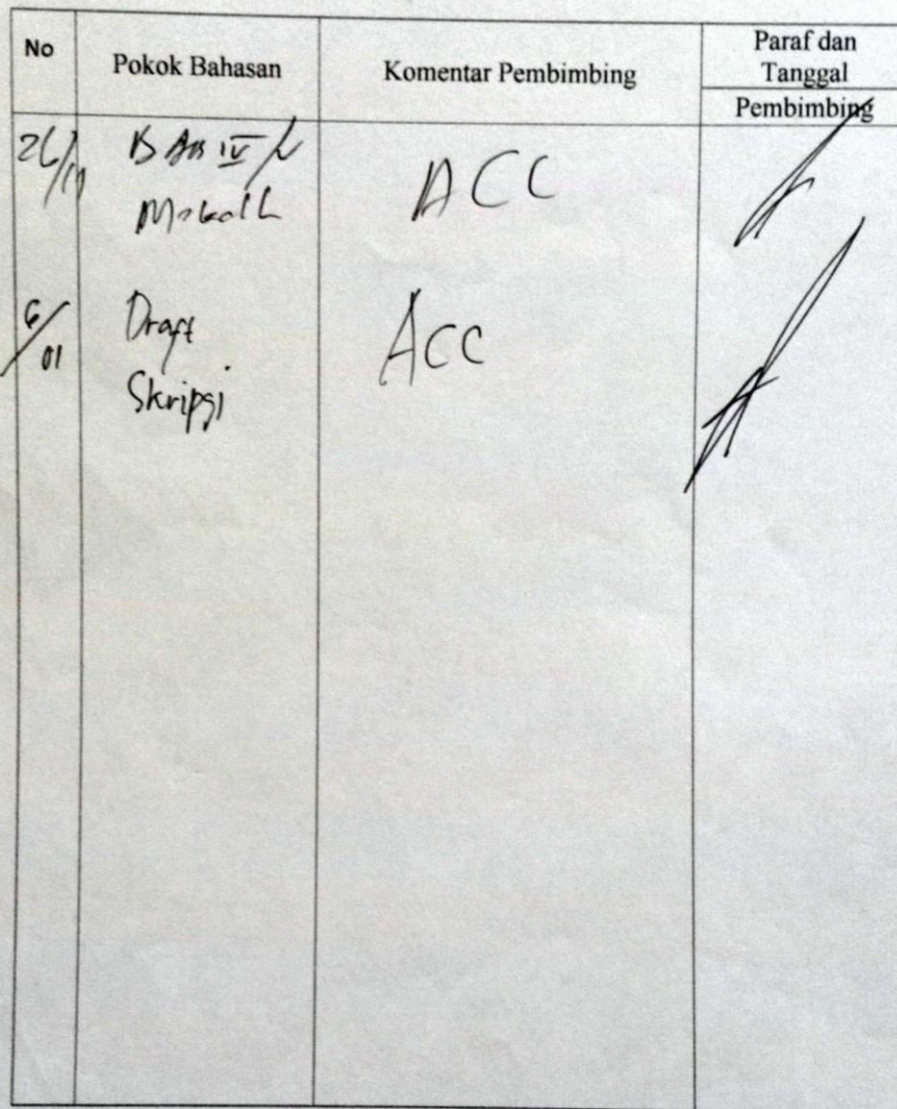 No
Pokok Bahasan
Komentar Pembimbing
Paraf dan
Tanggal
Pembimbing
BAB IV
ACC
6/01
Draft
Skripsi
ACC